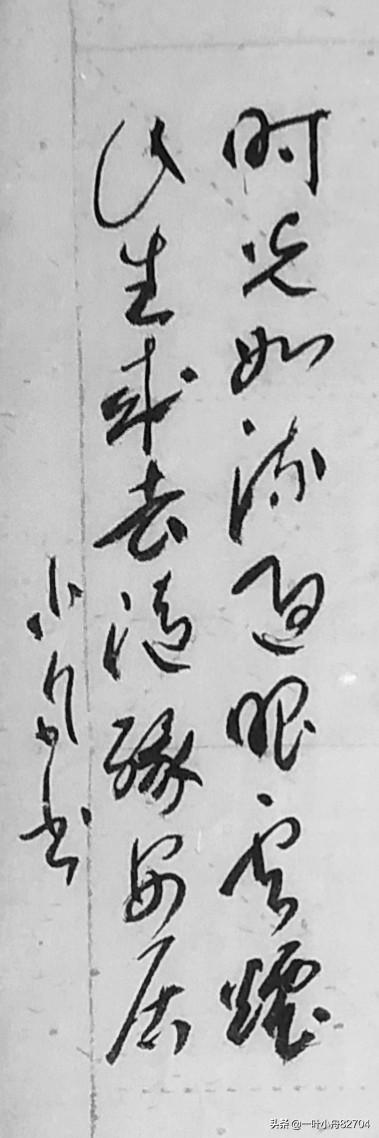 时光如流过眼雲煙
此生来去随缘安居
小舟书
头条@一叶小舟82704